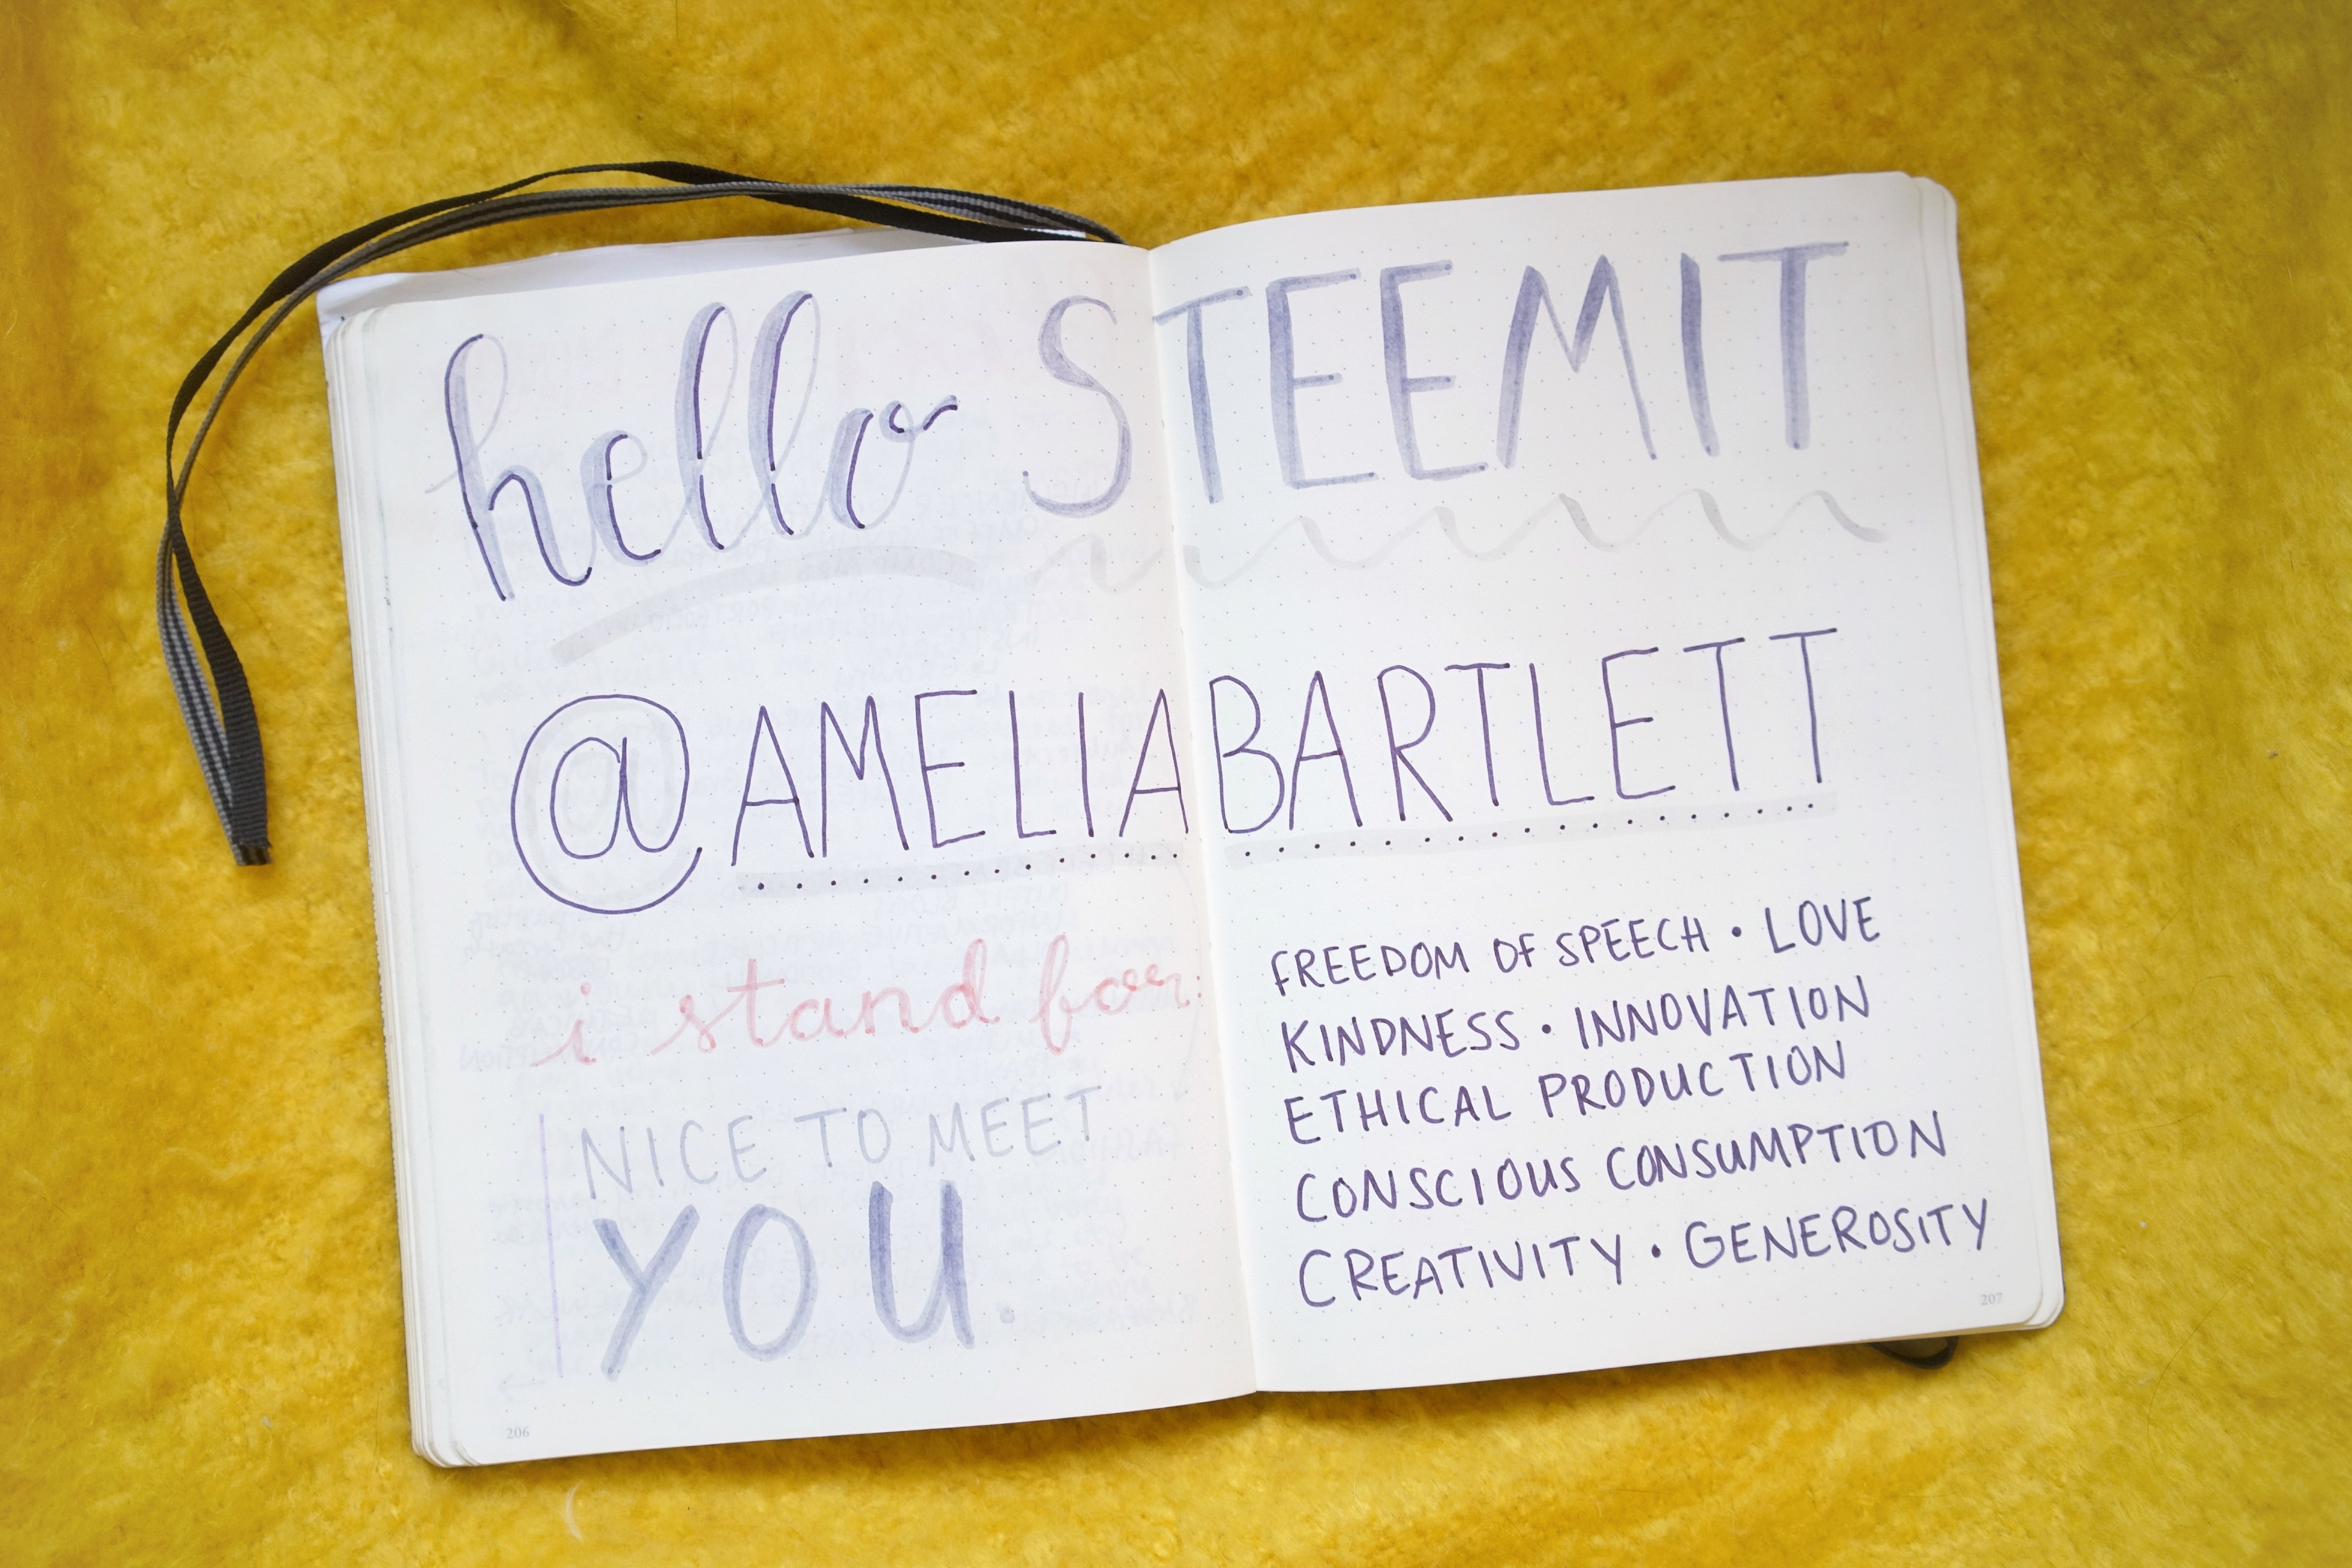 hello STEEMIT
@AMELIABARTLETT
i stand for:
FREEDOM OF SPEECH • LOVE
KINDNESS • INNOVATION
ETHICAL PRODUCTION
CONSCIOUS CONSUMPTION
CREATIVITY • GENEROSITY
NICE TO MEET
YOU.
206
207